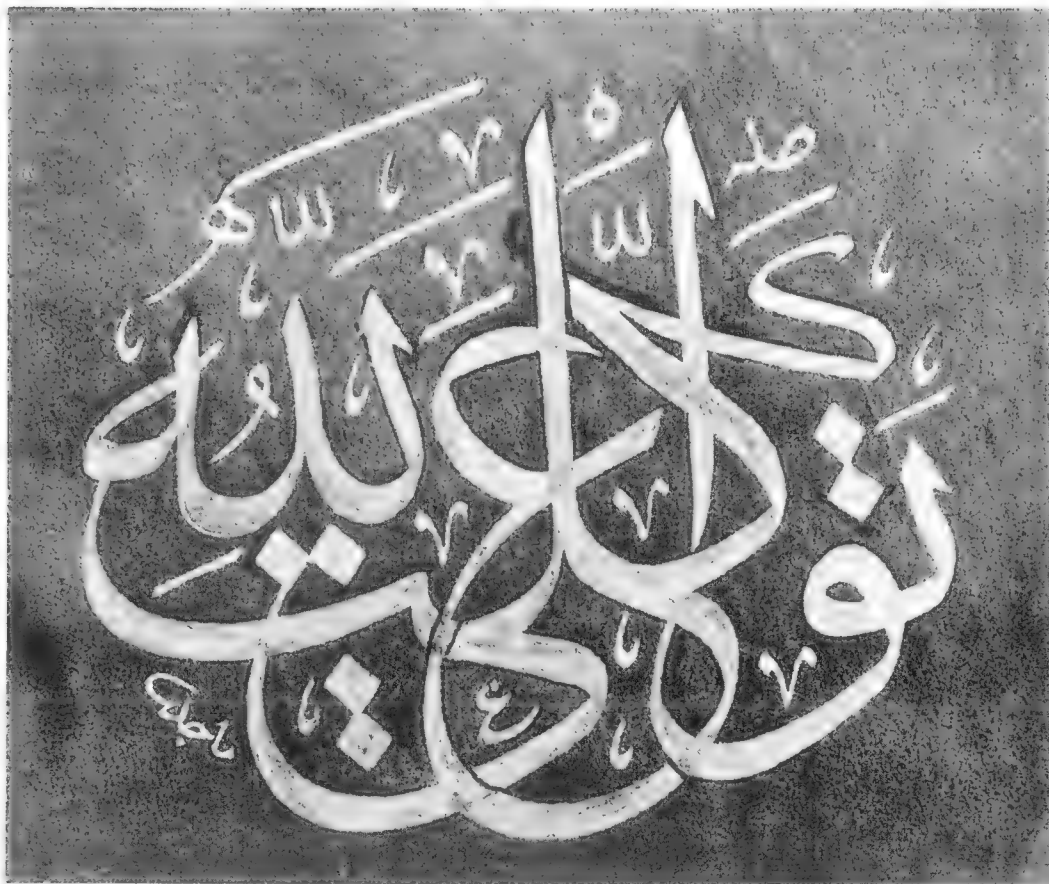 تَوَكَّلْتُ عَلَى اللَّهِ